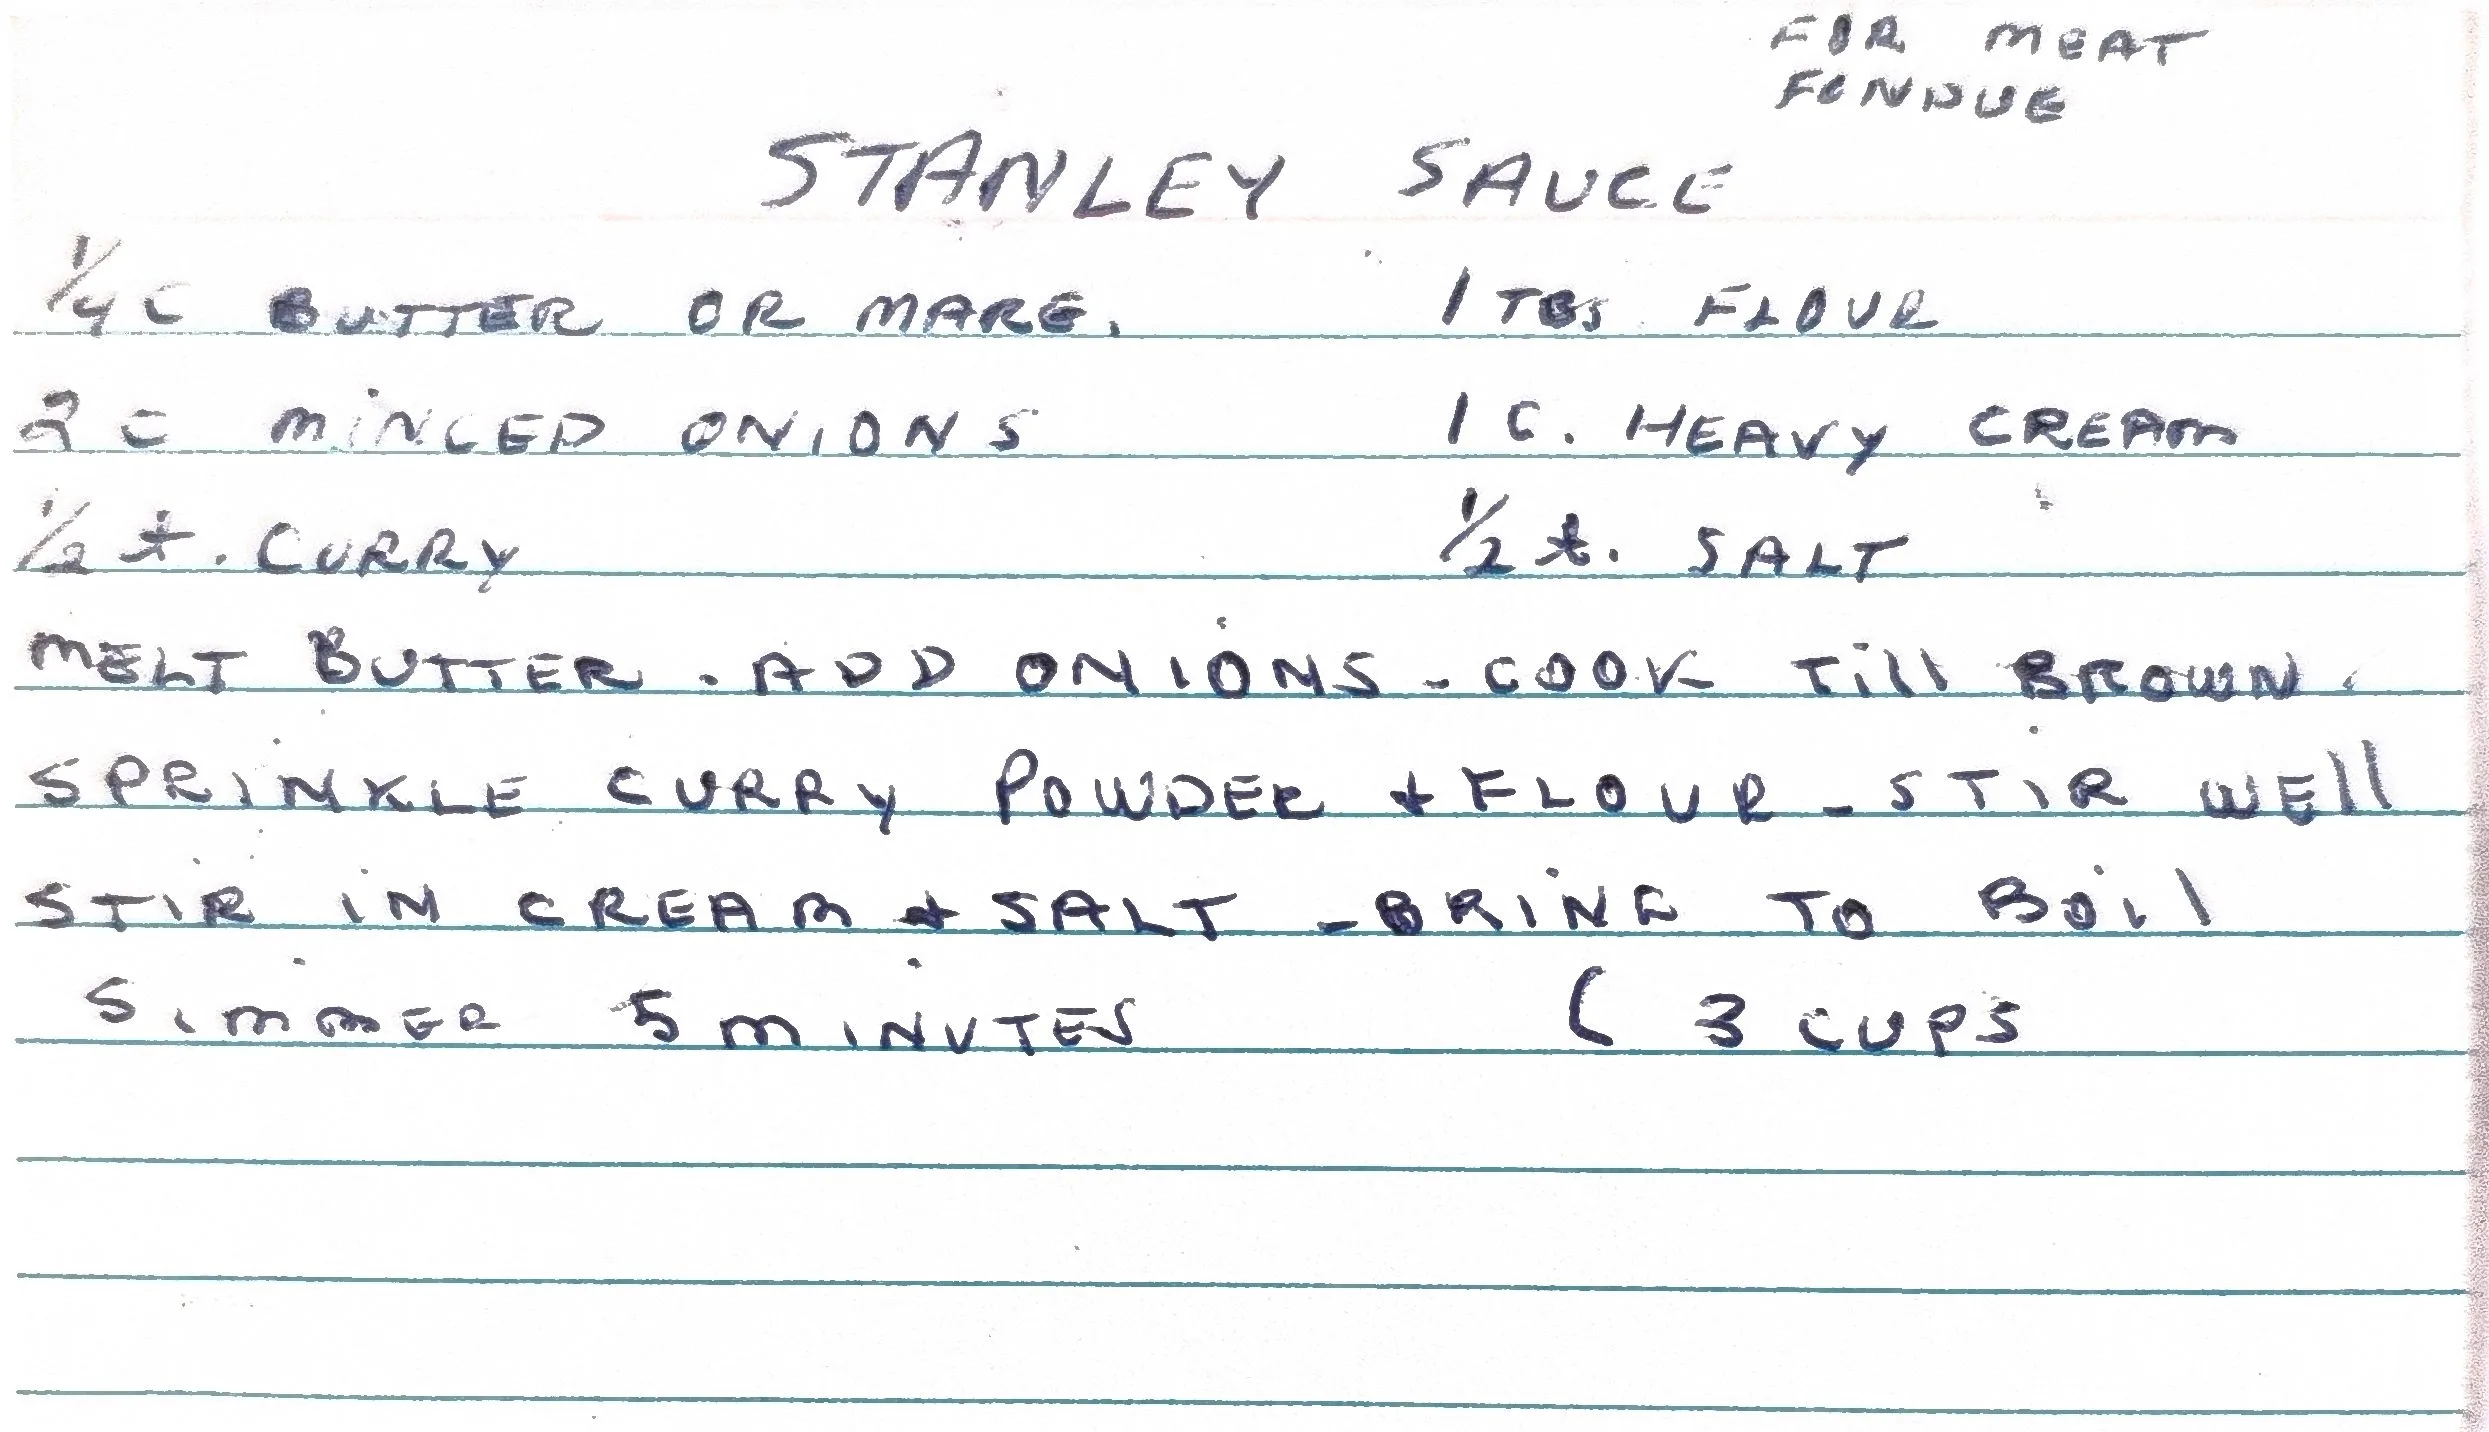 FOR MEAT
FONDUE
STANLEY SAUCE
1/4 C BUTTER OR MARG. 1 TBS FLOUR
2 C MINCED ONIONS 1 C. HEAVY CREAM
1/2 t. CURRY 1/2 t. SALT
MELT BUTTER. ADD ONIONS - COOK Till BROWN.
SPRINKLE CURRY POWDER + FLOUR - STIR WEll
STIR IN CREAM + SALT - BRING TO BOil
SIMMER 5 MINUTES ( 3 CUPS